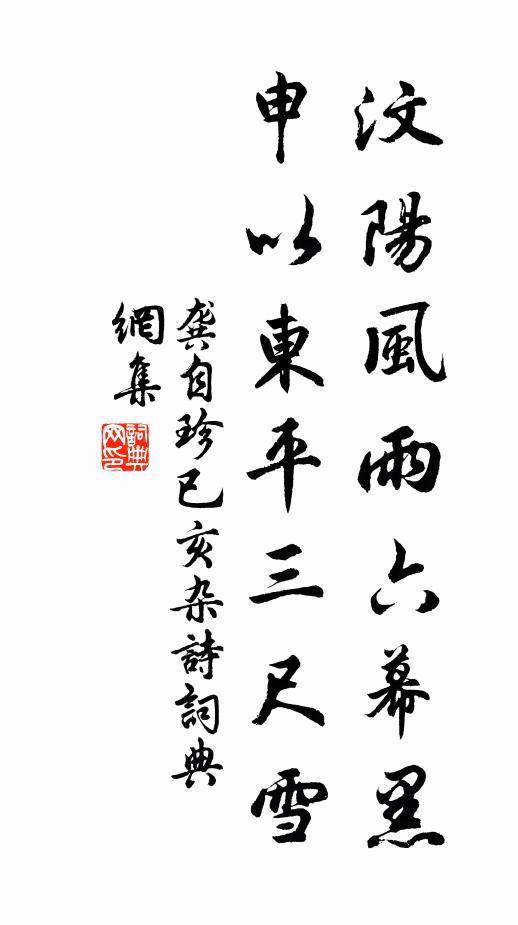 汶陽風雨六幕黑
申以東平三尺雪
龔自珍已亥杂詩詞典
網集
詞典
网印